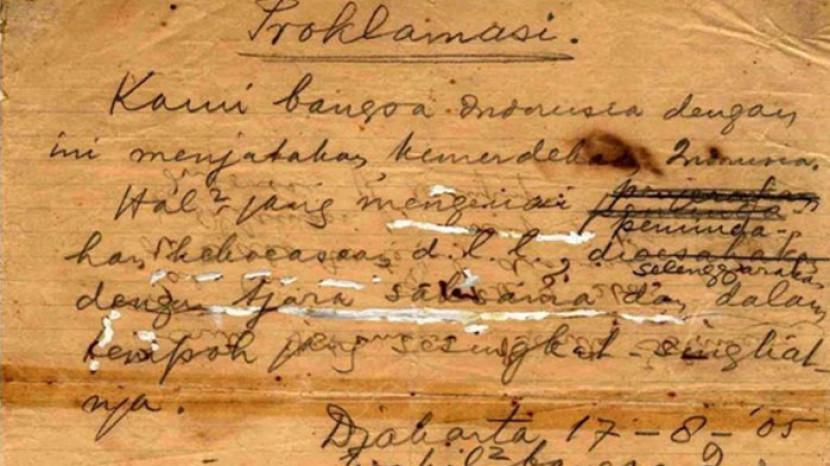 Proklamasi.
Kami bangsa Indonesia dengan
ini menjatakan kemerdekaan Indonesia.
Hal² jang mengenai
pemindahan
kekoeasaan d.l.l., dioesahakan
diselenggarakan
dengan tjara saksama dan dalam
tempoh jang sesingkat-singkat-
nja.
Djakarta 17 - 8 - '05
Wakil² bangsa